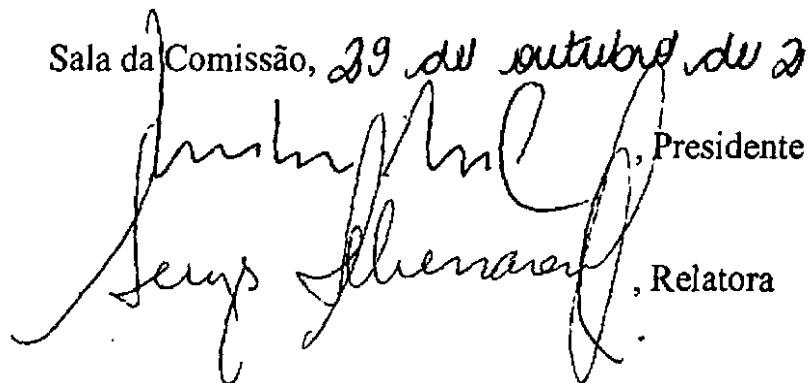 Sala da Comissão, 29 de outubro de 2
, Presidente
Serys , Relatora